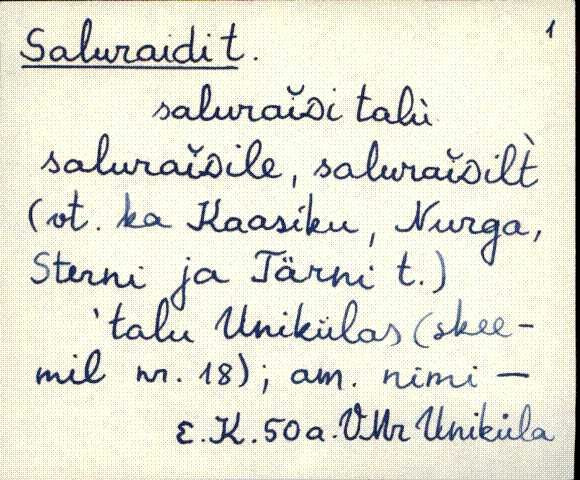 1
Saluraidi t.
saluraĭᴅi talù
saluraĭᴅile, saluraĭᴅilt̀
(vt. ka Kaasiku, Nurga,
Sterni ja Tärni t.)
'talu Unikülas (skee-
mil nr. 18); am. nimi —
E.K. 50 a. VMr Uniküla